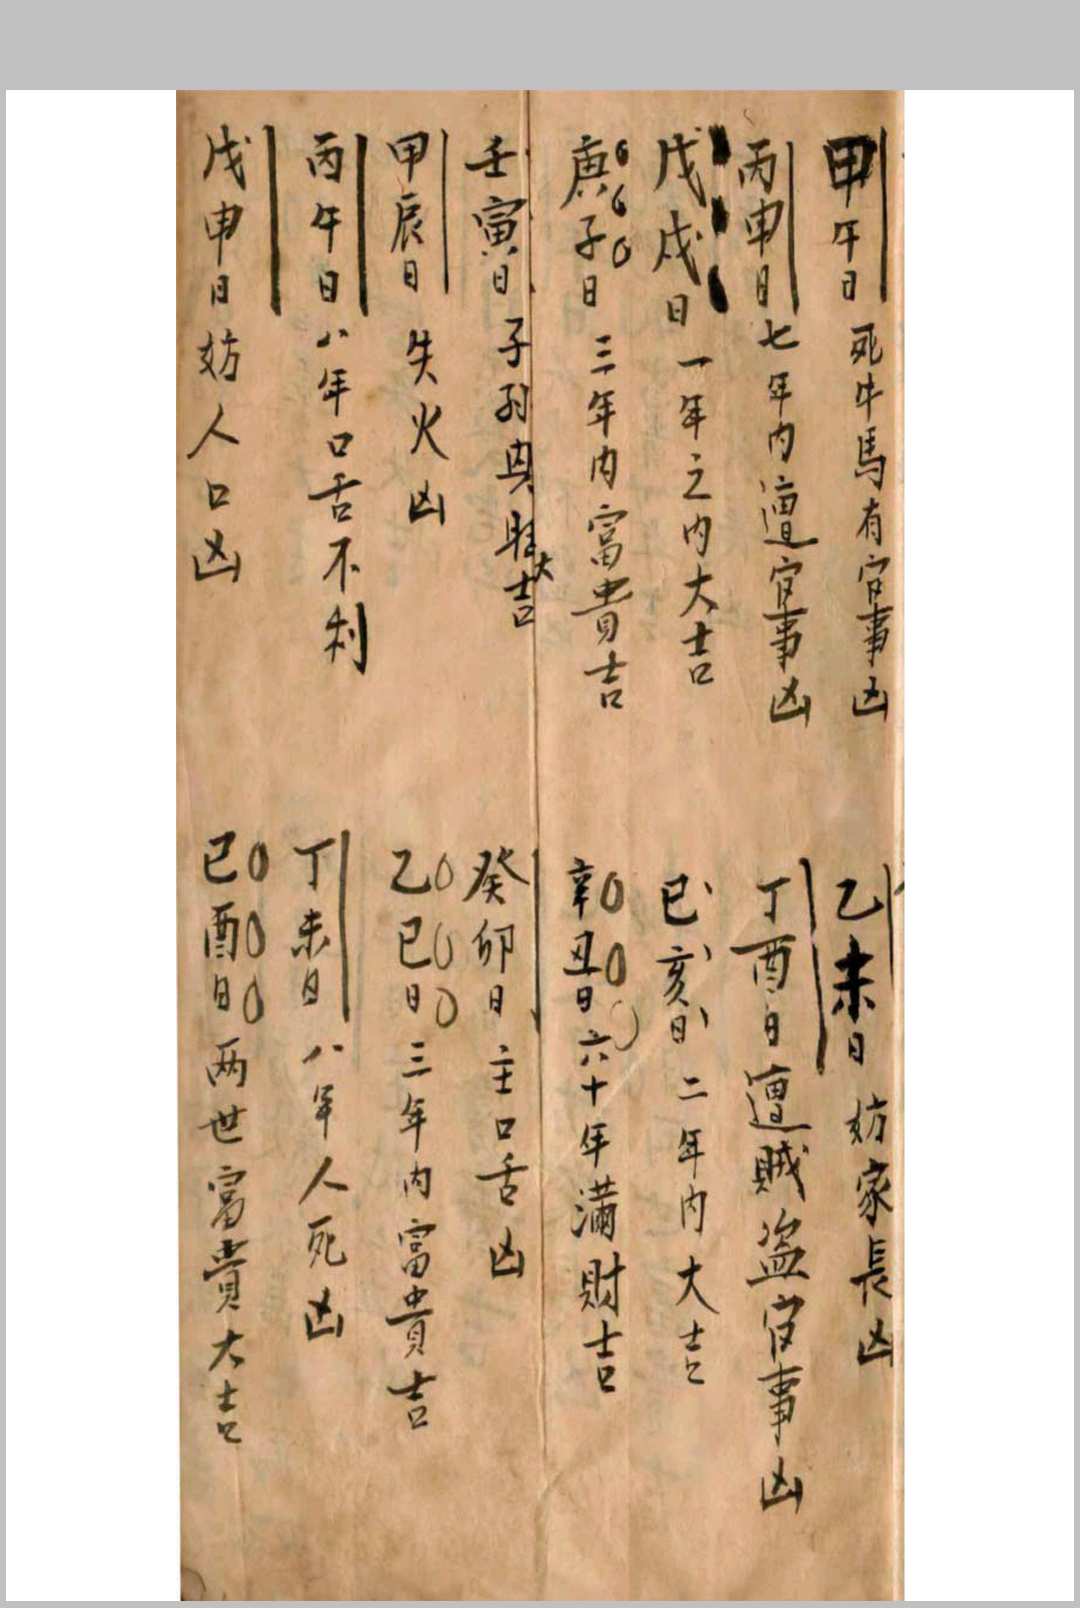 甲午日死牛馬有官事凶
乙未日妨家長凶
丙申日七年内遭官事凶
丁酉日遭賊盗官事凶
戊戌日一年之内大吉
己亥日二年内大吉
庚子日三年内富貴吉
辛丑日六十年滿財吉
壬寅日子孙大吉
癸卯日主口舌凶
甲辰日失火凶
乙巳日三年内富貴吉
丙午日八年口舌不利
丁未日八年人死凶
戊申日妨人口凶
己酉日两世富貴大吉